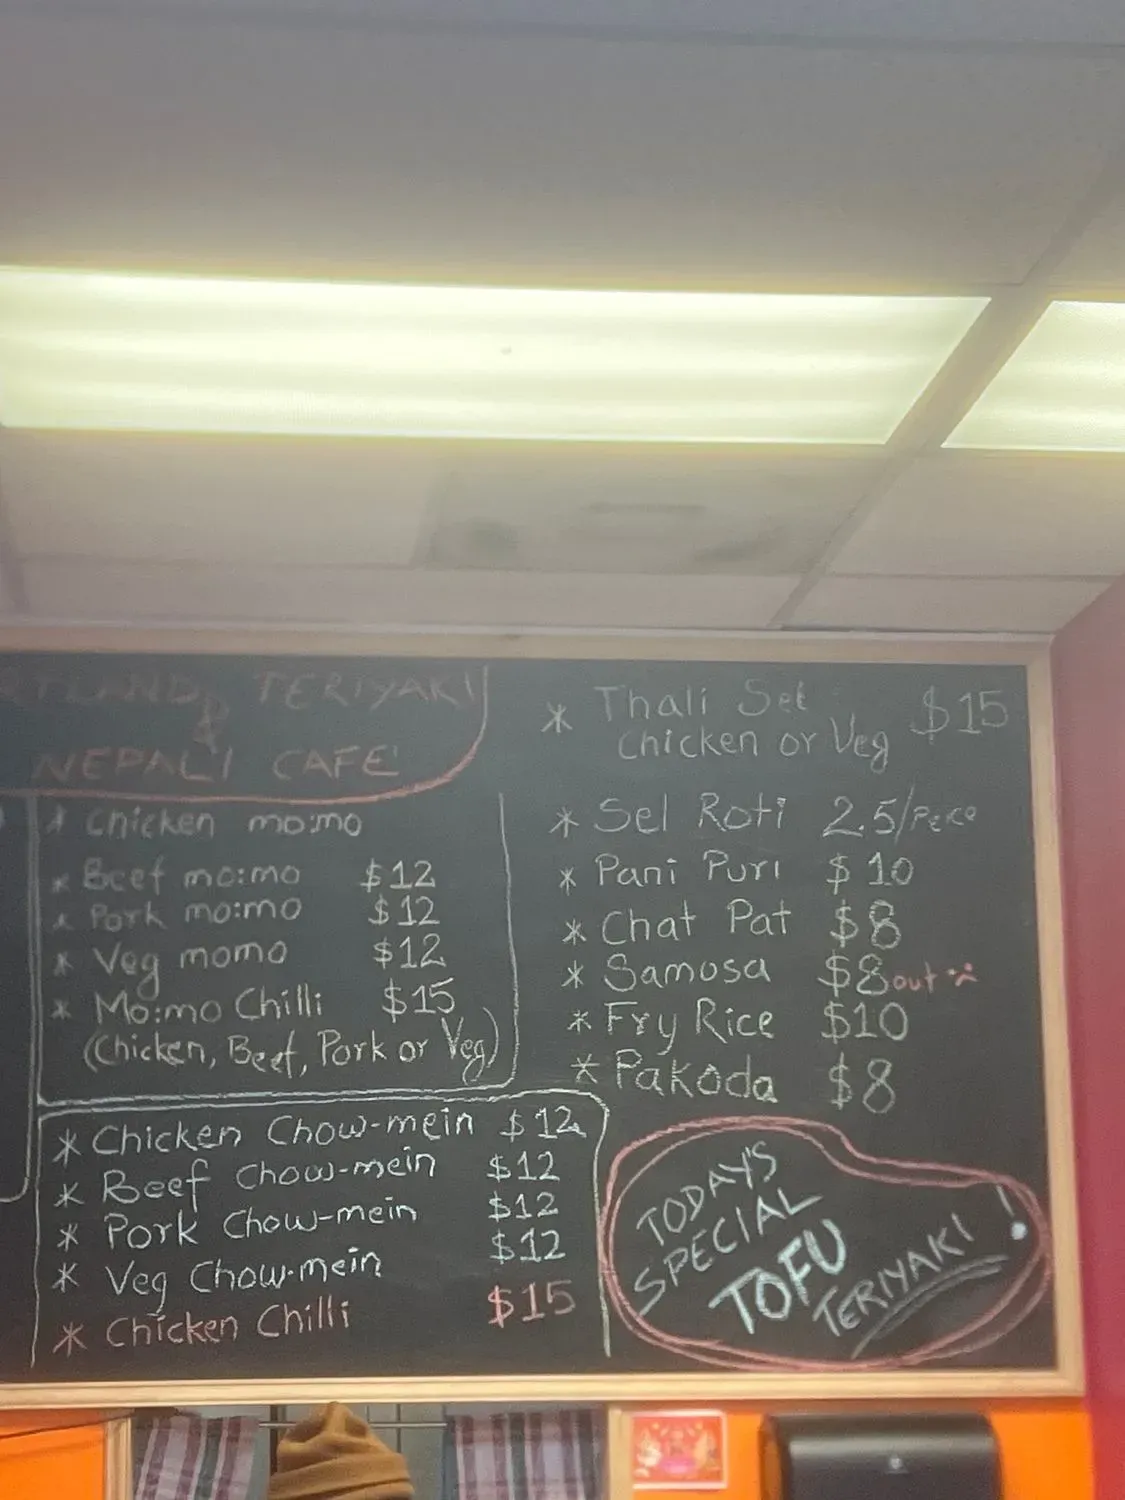 TLAND TERIYAKI
&
NEPALI CAFE
* Chicken mo:mo
* Beef mo:mo $12
* Pork mo:mo $12
* Veg momo $12
* Mo:mo Chilli $15
(Chicken, Beef, Pork or Veg)
* Chicken Chow-mein $12
* Beef Chow-mein $12
* Pork Chow-mein $12
* Veg Chow-mein $12
* Chicken Chilli $15
* Thali Set $15
Chicken or Veg
* Sel Roti 2.5/Peice
* Pani Puri $10
* Chat Pat $8
* Samosa $8 out
* Fry Rice $10
* Pakoda $8
TODAY'S
SPECIAL
TOFU
TERIYAKI !